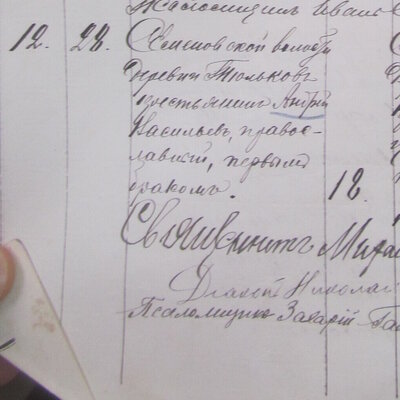 Псаломщикъ Иванъ
12. 28. Семеновской волости
деревни Тюльковъ
крестьянинъ Андрей
Васильевъ, право-
славный, первымъ
бракомъ. 18.
Священникъ Миха
Діаконъ Николай
Псаломщикъ Захарій